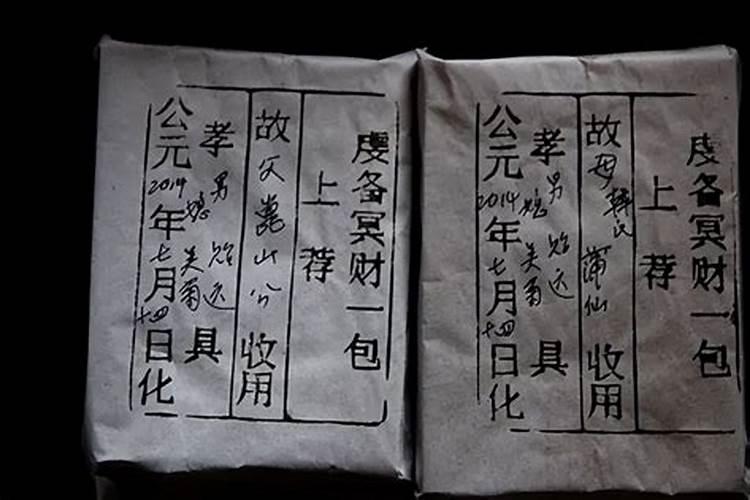 虔备冥财一包
上荐
故父 山公 收用
孝男 贻远 具
媳 美菊
公元2014年七月十四日化
虔备冥财一包
上荐
故母韩氏 仙 收用
孝男 贻远 具
媳 美菊
公元2014年七月十四日化